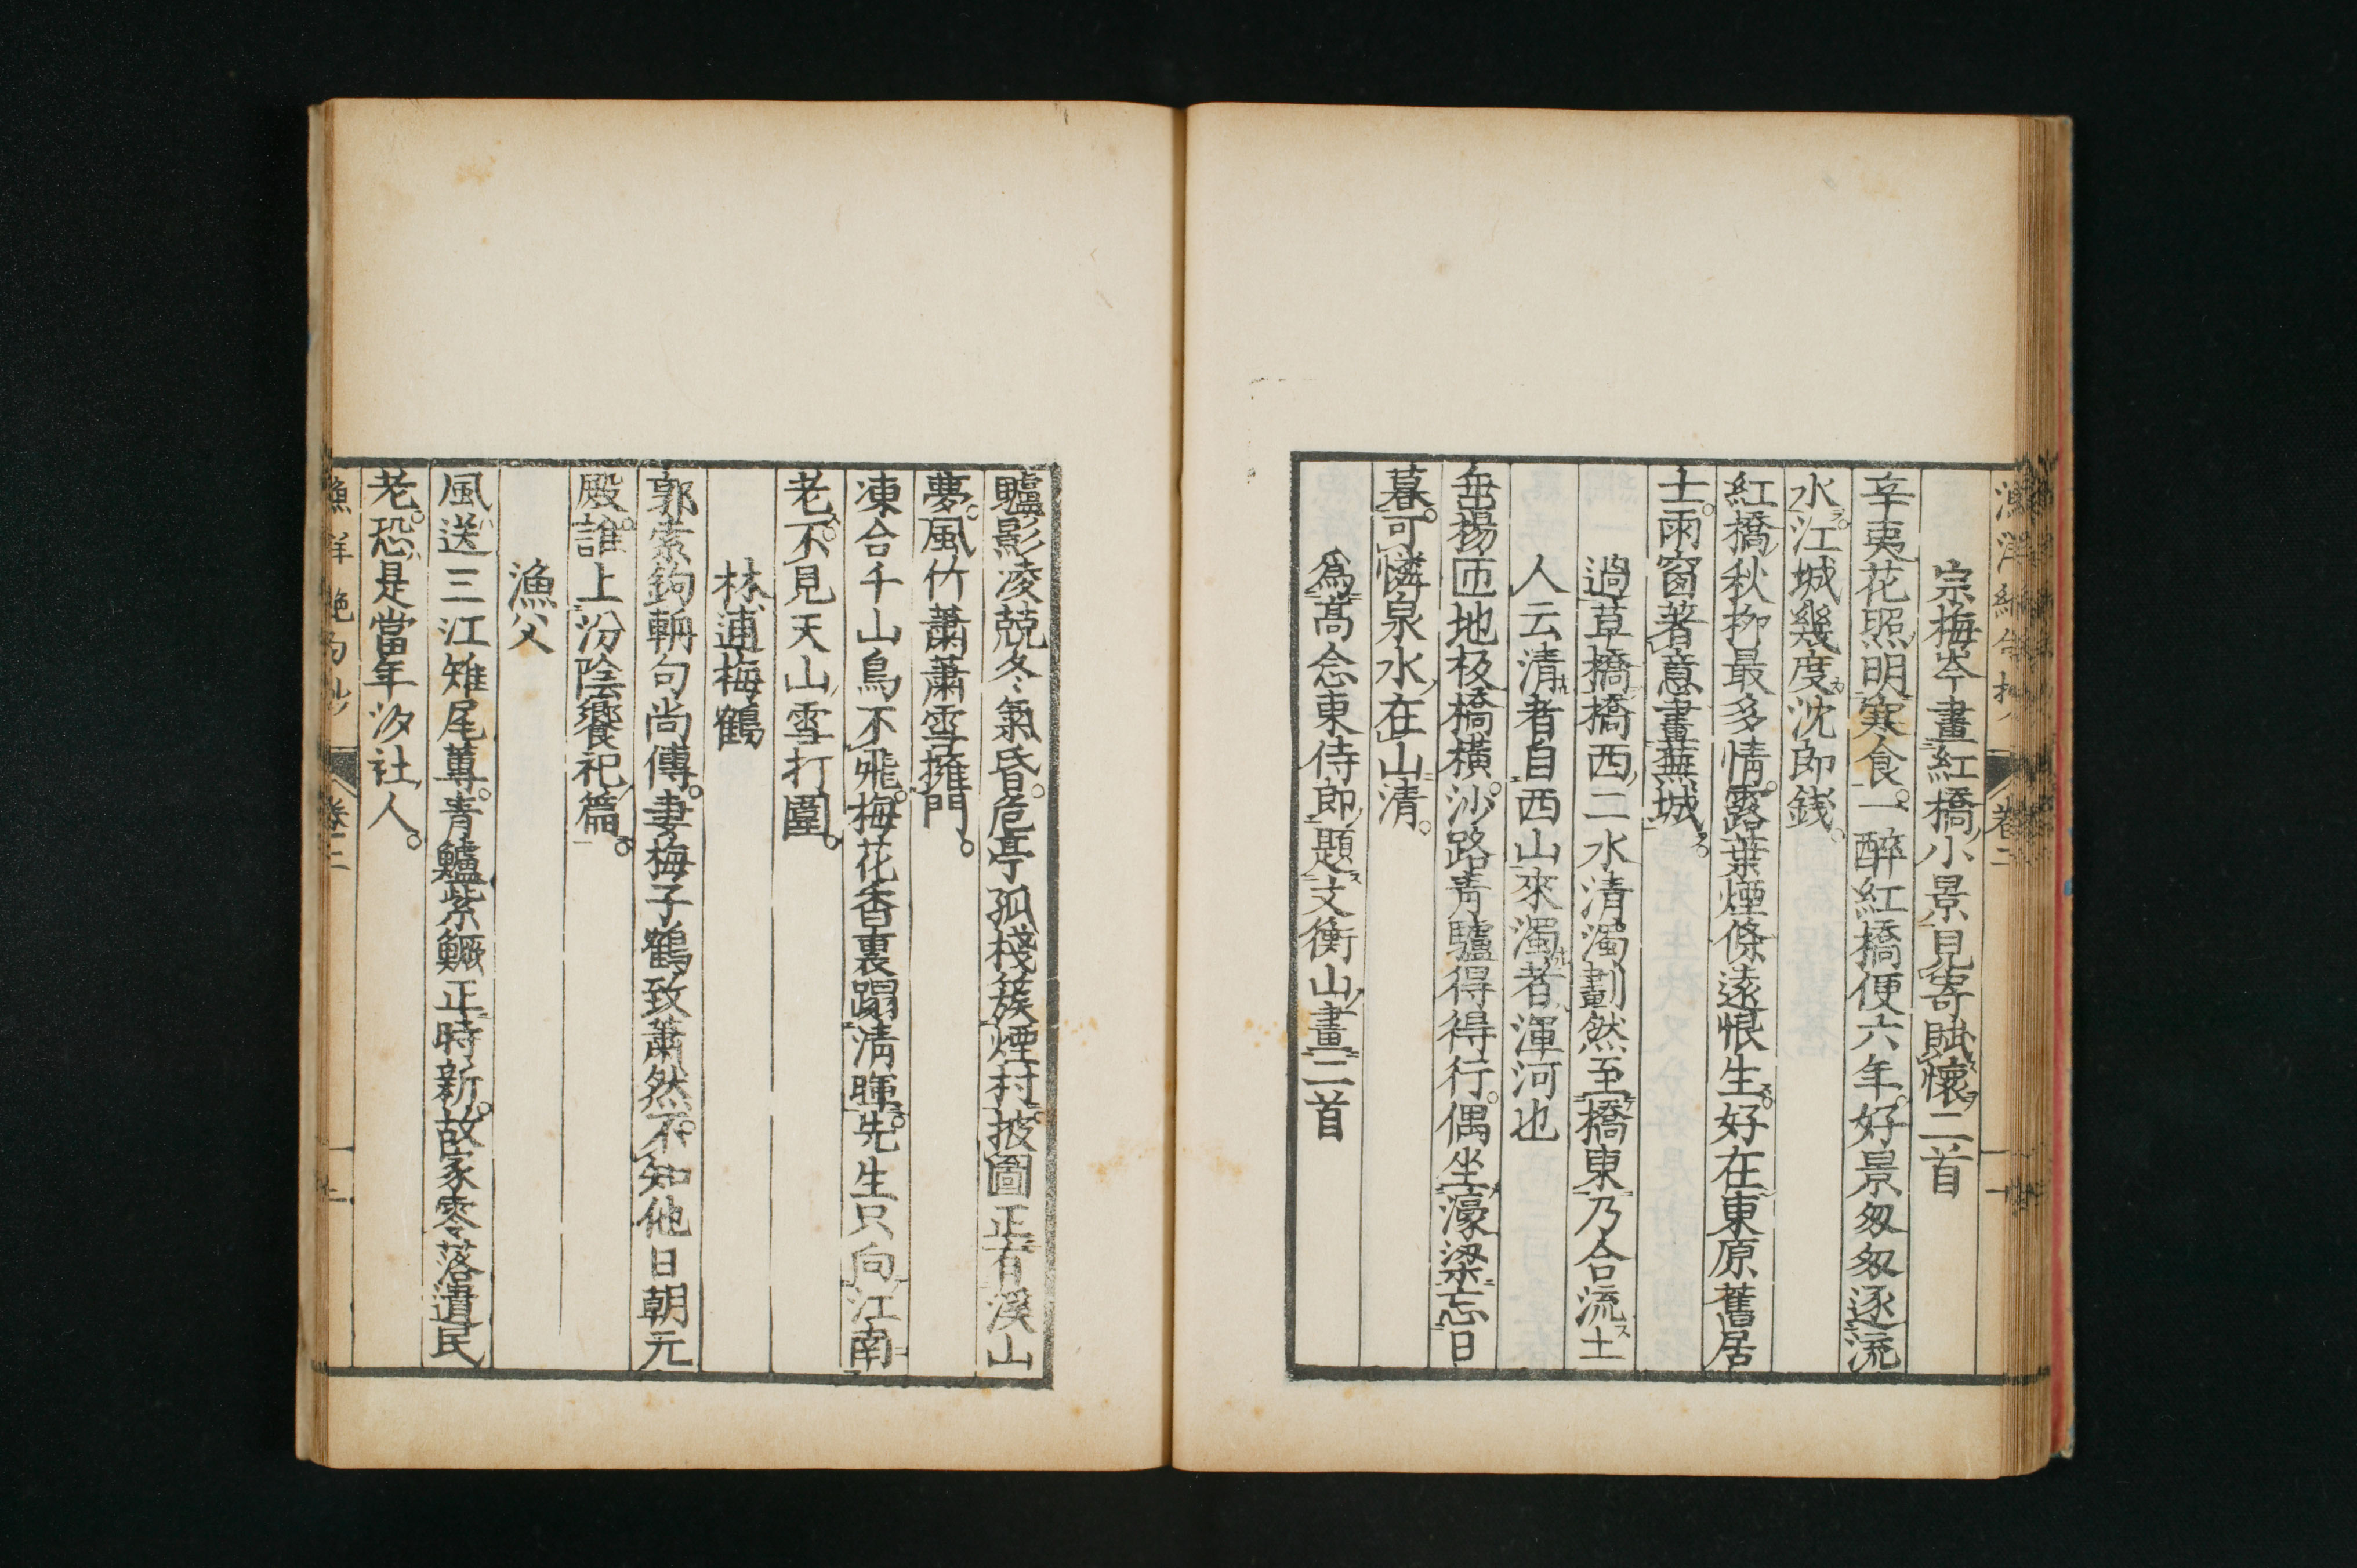 漁洋絶句抄 卷二
宗梅岑畫紅橋小景見寄賦懷二首
辛夷花照明寒食一醉紅橋便六年好景匆匆逐流
水江城幾度沈郎錢
紅橋秋柳最多情露葉煙條遠恨生好在東原舊居
士雨窗著意畫蕪城
過草橋橋西二水清濁劃然至橋東乃合流土
人云清者自西山來濁者渾河也
無楊匝地板橋橫沙路青驢得得行偶坐濠梁忘日
暮可憐泉水在山清
爲高念東侍郎題文衡山畫二首
驢影凌兢冬氣昏危亭孤棧簇煙村披圖正有溪山
夢風竹蕭蕭雪擁門
凍合千山鳥不飛梅花香裏蹋清暉先生只向江南
老不見天山雪打圍
林逋梅鶴
郭索鉤輈句尚傳妻梅子鶴致蕭然不知他日朝元
殿誰上汾陰饗祀篇
漁父
風送三江雉尾蓴青鱸紫鱖正時新故家零落遺民
老恐是當年汐社人
漁洋絶句抄 卷二